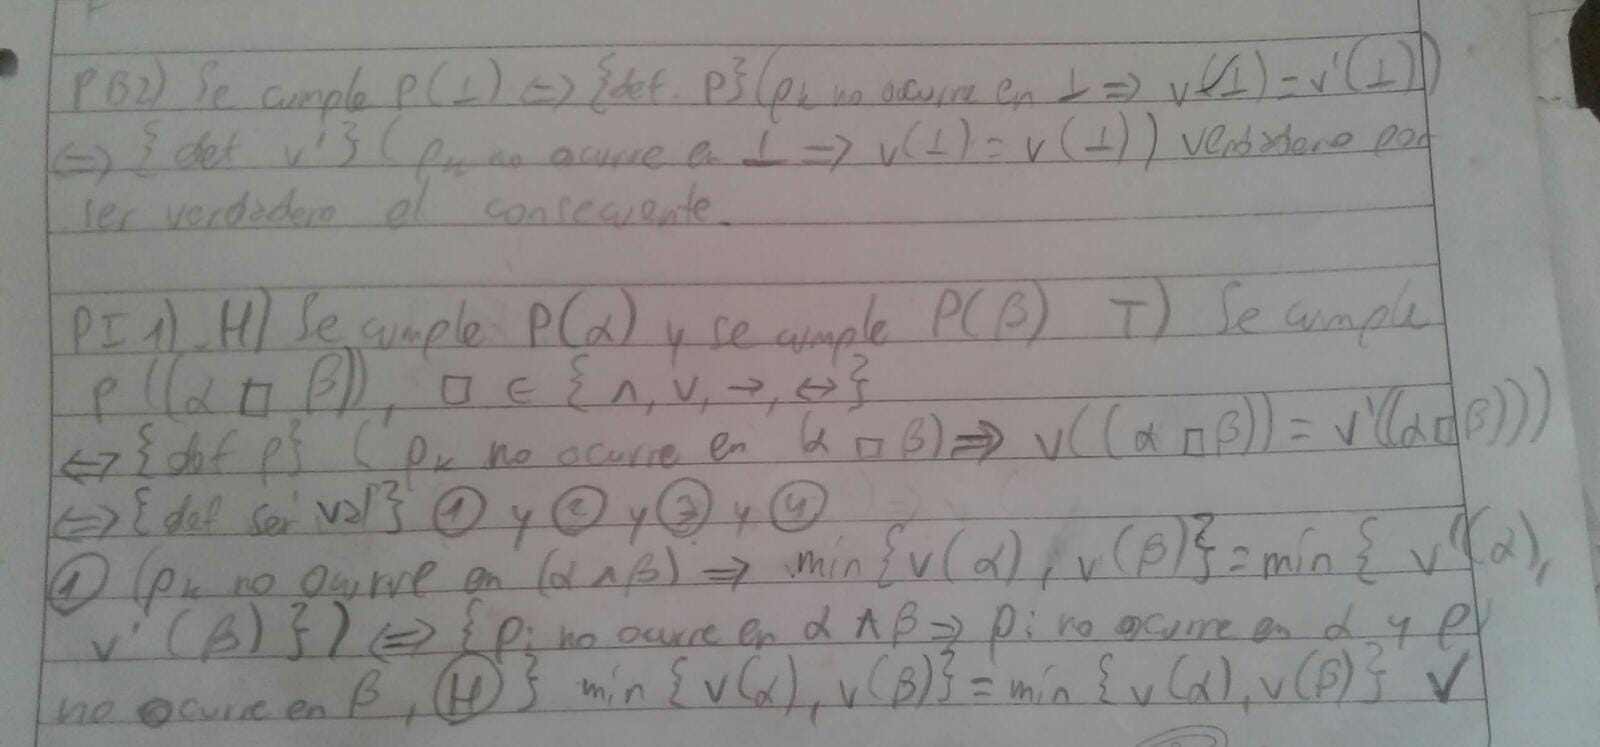 PB2) Se cumple P(⊥) <=> {def. P} (pₖ no ocurre en ⊥ => v(⊥) = v'(⊥))
<=> {def v'} (pₖ no ocurre en ⊥ => v(⊥) = v(⊥)) verdadero por
ser verdadero el consecuente.
PI 1) H) Se cumple P(α) y se cumple P(β) T) Se cumple
P((α □ β)), □ ∈ {∧, ∨, →, ↔}
<=> {def P} (pₖ no ocurre en (α □ β) => v((α □ β)) = v'((α □ β)))
<=> {def ser val} ① y ② y ③ y ④
① (pₖ no ocurre en (α ∧ β) => min {v(α), v(β)} = min { v'(α),
v'(β) }) <=> {pi no ocurre en α ∧ β => pi no ocurre en α y p
no ocurre en β, Ⓗ} min {v(α), v(β)} = min {v(α), v(β)} ✓